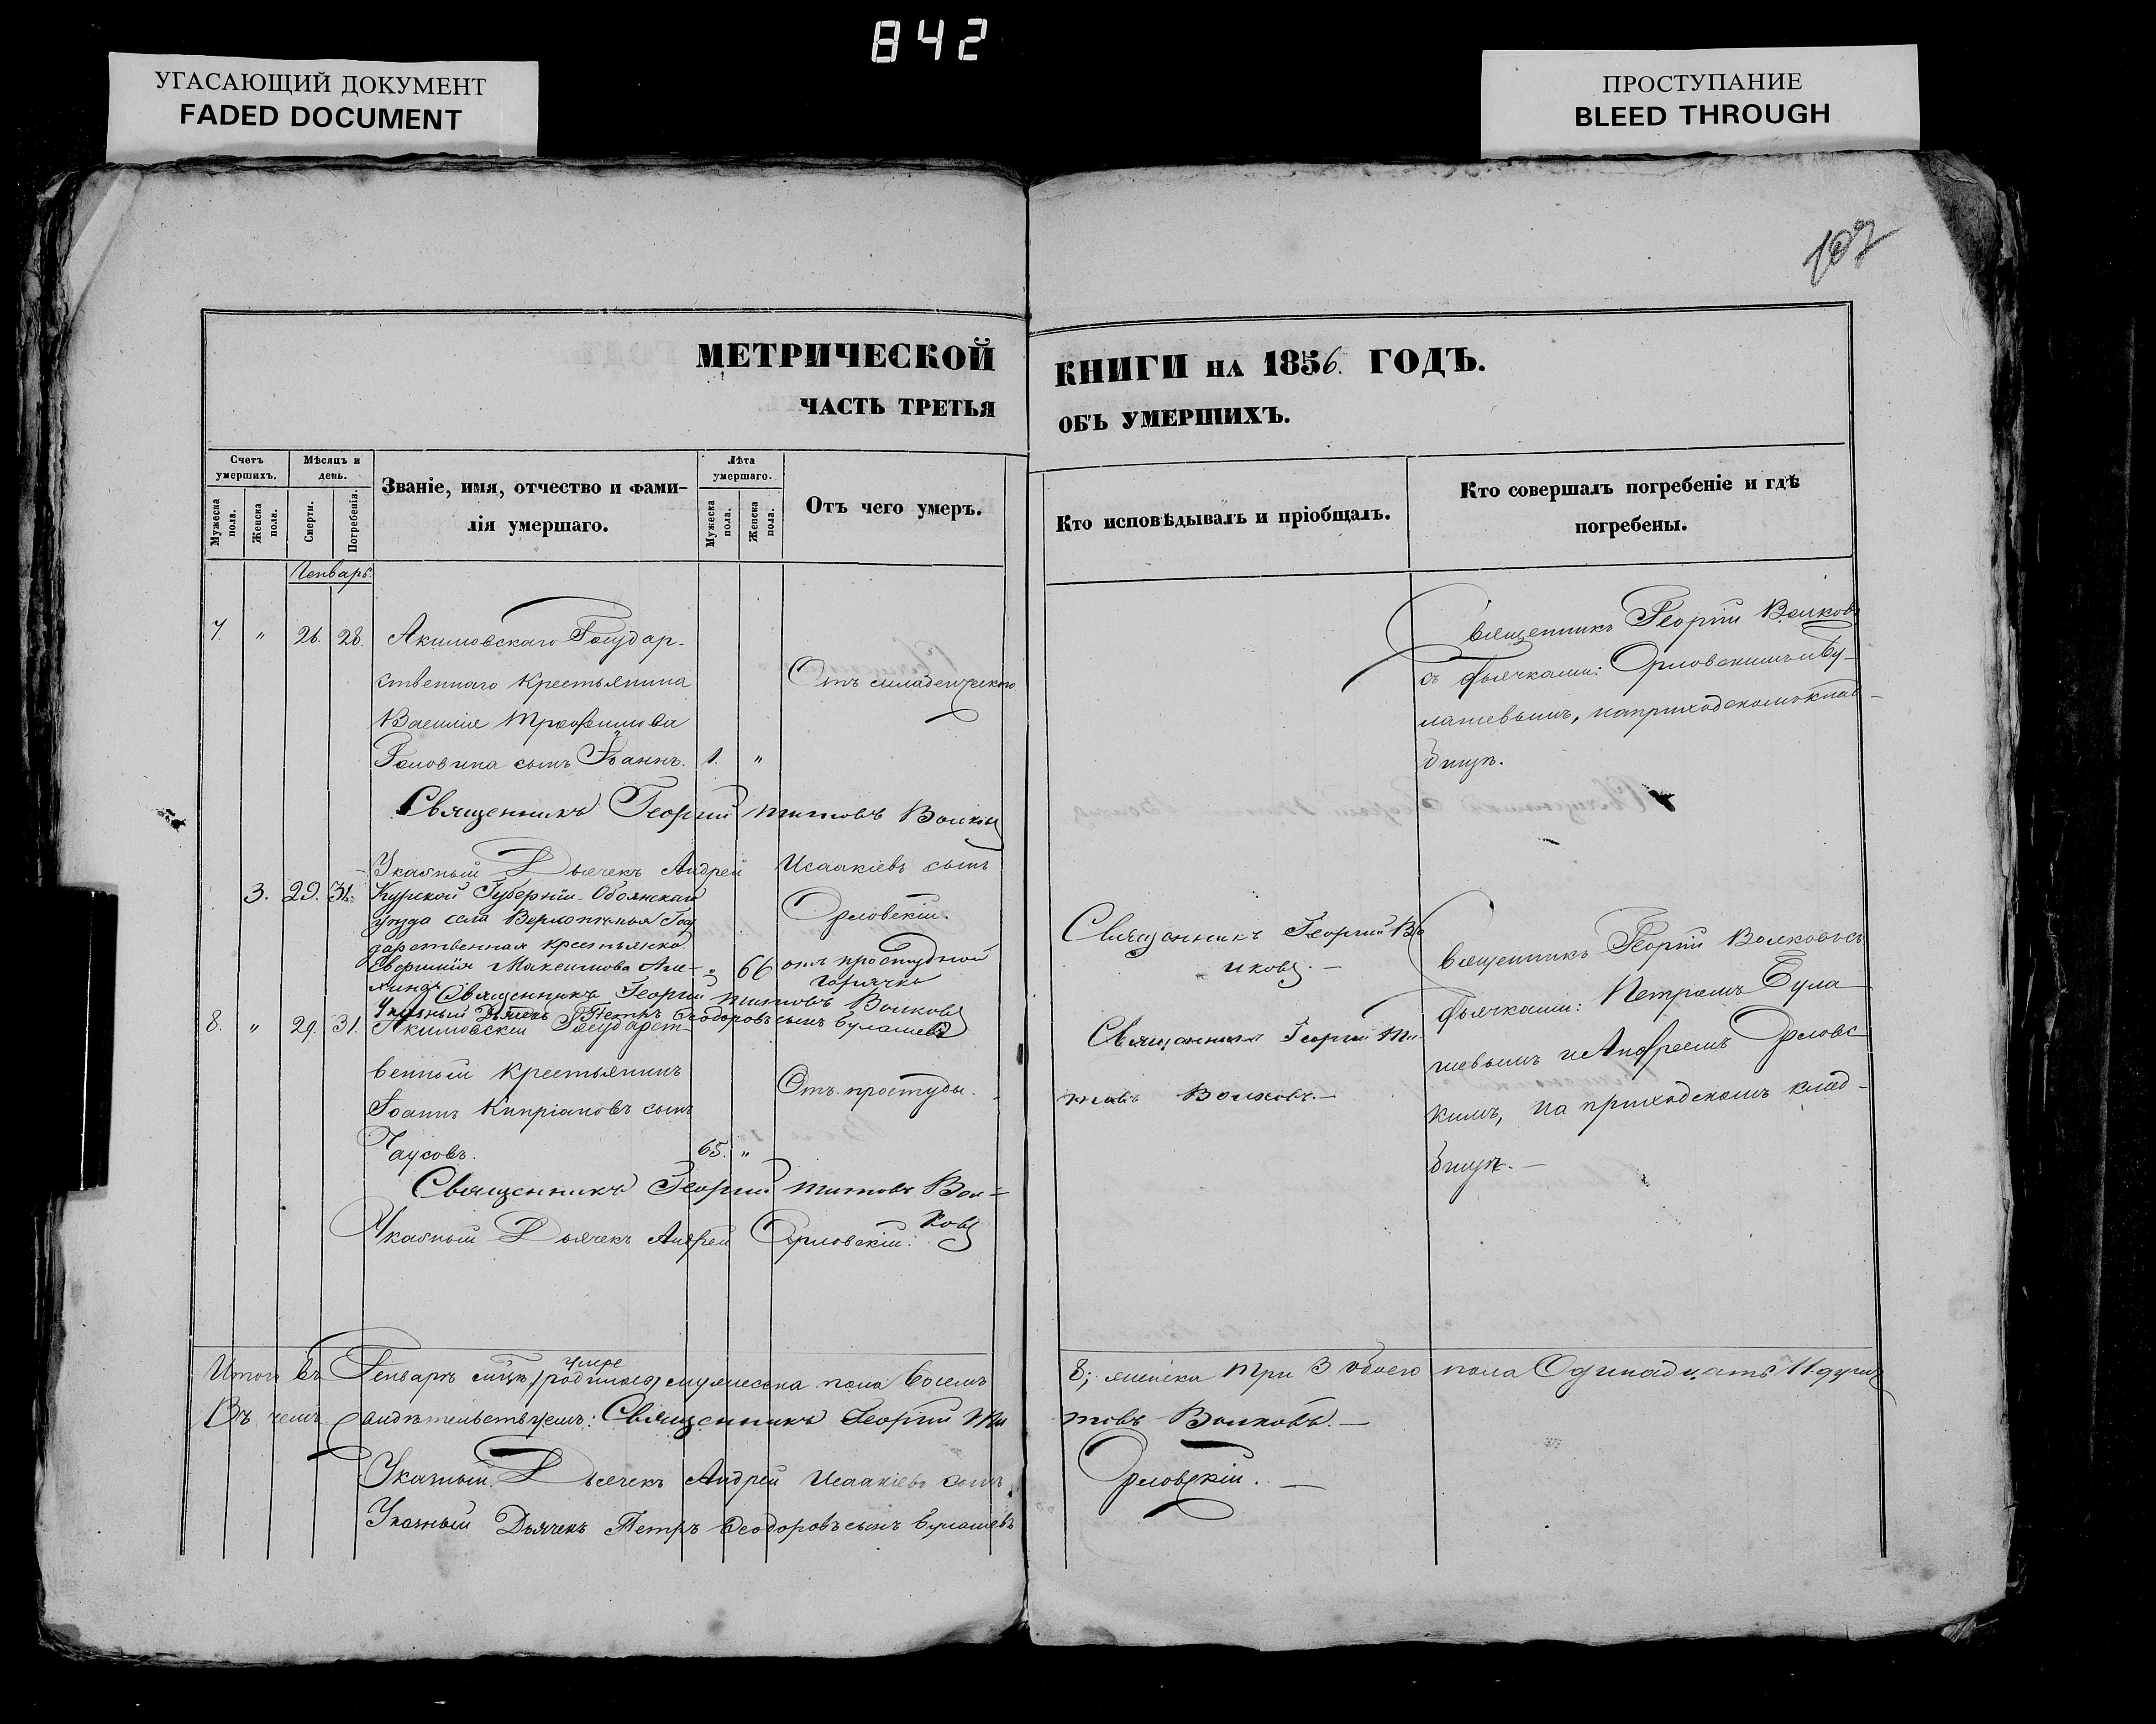 842
УГАСАЮЩИЙ ДОКУМЕНТ
FADED DOCUMENT
ПРОСТУПАНИЕ
BLEED THROUGH
107
МЕТРИЧЕСКОЙ
ЧАСТЬ ТРЕТЬЯ
КНИГИ НА 1856. ГОДЪ.
ОБЪ УМЕРШИХЪ.
Счетъ умершихъ.
Мужеска пола.
Женска пола.
Мѣсяцъ и день.
Смерти.
Погребенія.
Званіе, имя, отчество и фами-
лія умершаго.
Лѣта умершаго.
Мужеска пола.
Женска пола.
Отъ чего умеръ.
Кто исповѣдывалъ и пріобщалъ.
Кто совершалъ погребеніе и гдѣ
погребены.
Генварь.
7. " 26. 28. Акимовскаго Государ-
ственнаго Крестьянина
Василія Трофимова
Головина сынъ Іоаннъ. 1. "
Отъ младенческаго
Священникъ Георгій Волковъ
съ дьячками: Орловскимъ и Бу-
лашевымъ, на приходскомъ клад-
бищѣ.
Священникъ Георгій Титовъ Волковъ
Указный Дьячекъ Андрей Исаакіевъ сынъ
Орловскій.
3. 29. 31. Курской Губерніи Обоянскаго
уѣзда села Госу
дарственная крестьянка
Максимова
" 66 отъ простудной
горячки
Священникъ Георгій Титовъ Волковъ
Указный Дьячекъ Петръ Ѳеодоровъ сынъ Булашевъ
Священникъ Георгій Во
лковъ. —
Священникъ Георгій Волковъ съ
дьячками: Петромъ Була
шевымъ и Андреемъ Орловс
кимъ, на приходскомъ клад-
бищѣ. —
8. " 29. 31. Акимовскій Государст-
венный Крестьянинъ
Іоаннъ Кипріановъ сынъ
Чаусовъ. 65. "
Отъ простуды.
Священникъ Георгій Ти
товъ Волковъ. —
Священникъ Георгій Титовъ Вол-
ковъ
Указный Дьячекъ Андрей Орловскій.
Итого въ Генварѣ мужеска пола восемь 8; женска три 3 обоего пола Одинадцать 11 душъ
Въ чемъ свидѣтельствуемъ: Священникъ Георгій Титовъ Волковъ. —
Указный Дьячекъ Андрей Исаакіевъ сынъ Орловскій. —
Указный Дьячекъ Петръ Ѳеодоровъ сынъ Булашевъ